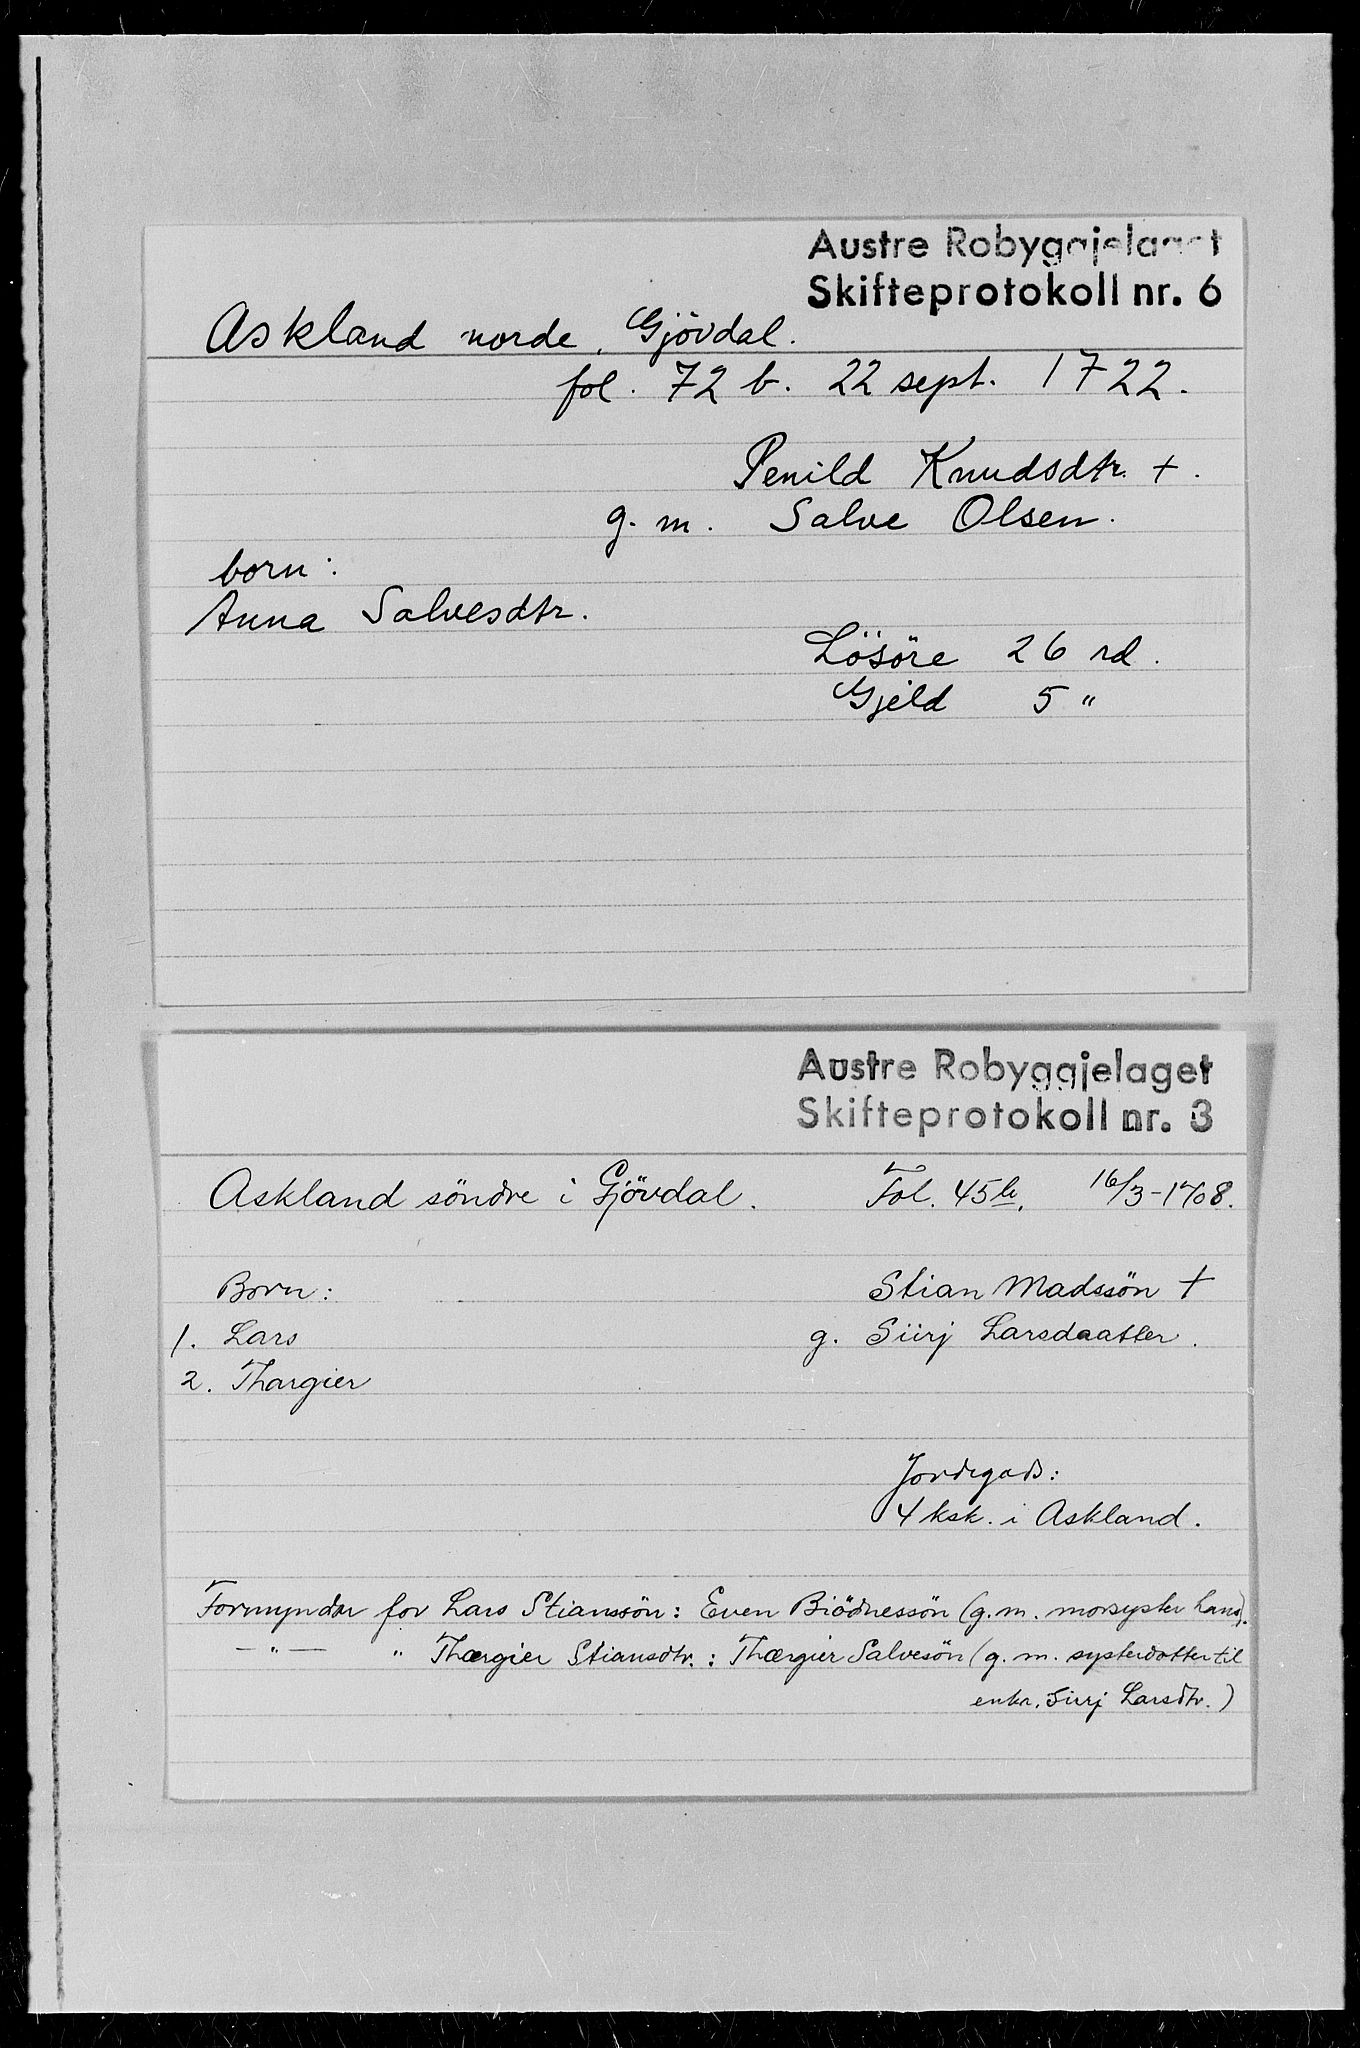 Austre Robyggjelaget
Skifteprotokoll nr. 6
Askland norde, Gjövdal.
fol. 72 b. 22 sept. 1722.
Penild Knudsdtr. +.
g. m. Salve Olsen.
born:
Anna Salvesdtr.
Lösöre 26 rd.
Gjeld 5 "
Austre Robyggjelaget
Skifteprotokoll nr. 3
Askland söndre i Gjövdal. Fol. 45b. 16/3-1708.
Born: Stian Madssön +
1. Lars g. Siirj Larsdaatter.
2. Thargier
Jordegods:
4 ksk. i Askland.
Formyndar for Lars Stianssön: Even Biödnessön (g. m. morsyster hans).
— " — " Thærgier Stiansdtr.: Thærgier Salvesön (g. m. systerdotter til
enka, Siirj Larsdtr.)